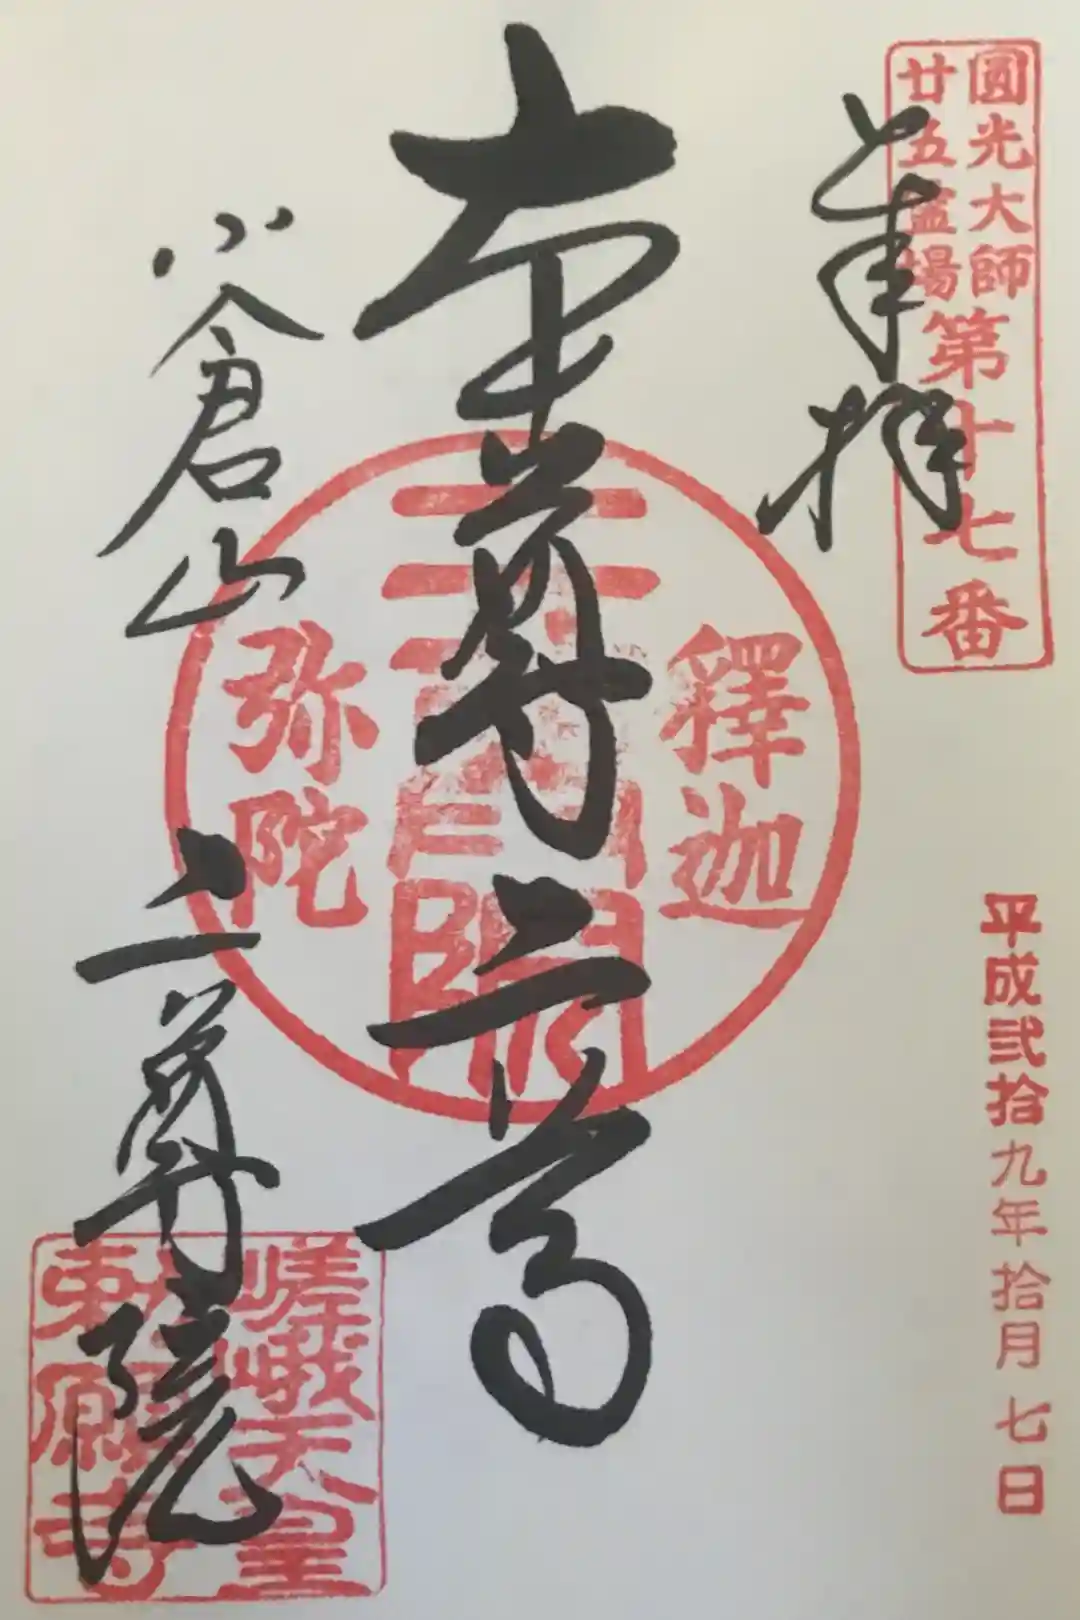 圓光大師
廿五霊場
第十七番
奉拝
平成弐拾九年拾月七日
本尊二尊
釋迦
弥陀
小倉山
二尊院
嵯峨天皇
勅願寺